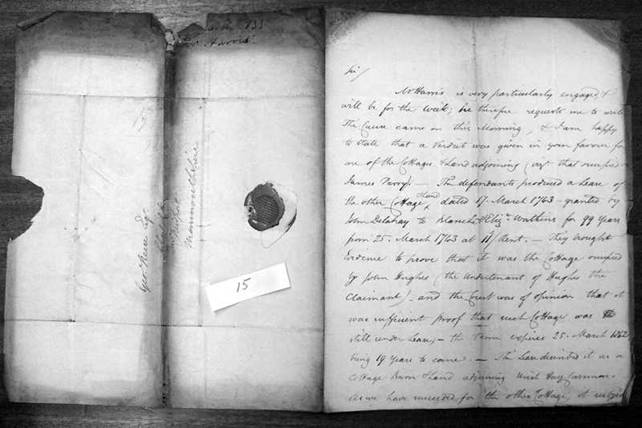 15
Monmouthshire
15
Sir/
Mr Harris is very particularly engaged &
will be for the week; he therefore requests me to write
The Cause came on this Morning, & I am happy
to state that a Verdict was given in your favour for
one of the Cottages & Land adjoining (viz that occupied
James Parry) — The defendants produced a Lease of
the other Cottage & Land dated 17. March 1763 granted by
John Delahay to Blanch & Eliz Watkins for 99 Years
from 25. March 1763 at Rent. — They brought
evidence to prove that it was the Cottage occupied
by John Hughes (the Undertenant of Hughes the
Claimant) — and the Court was of opinion that it
was sufficient proof that such Cottage was
still under Lease, — the Term expires 25. March 1862
being 19 Years to come. — The Lease described it as a
Cottage Barn & Land adjoining Common
As we have succeeded for the other Cottage, it